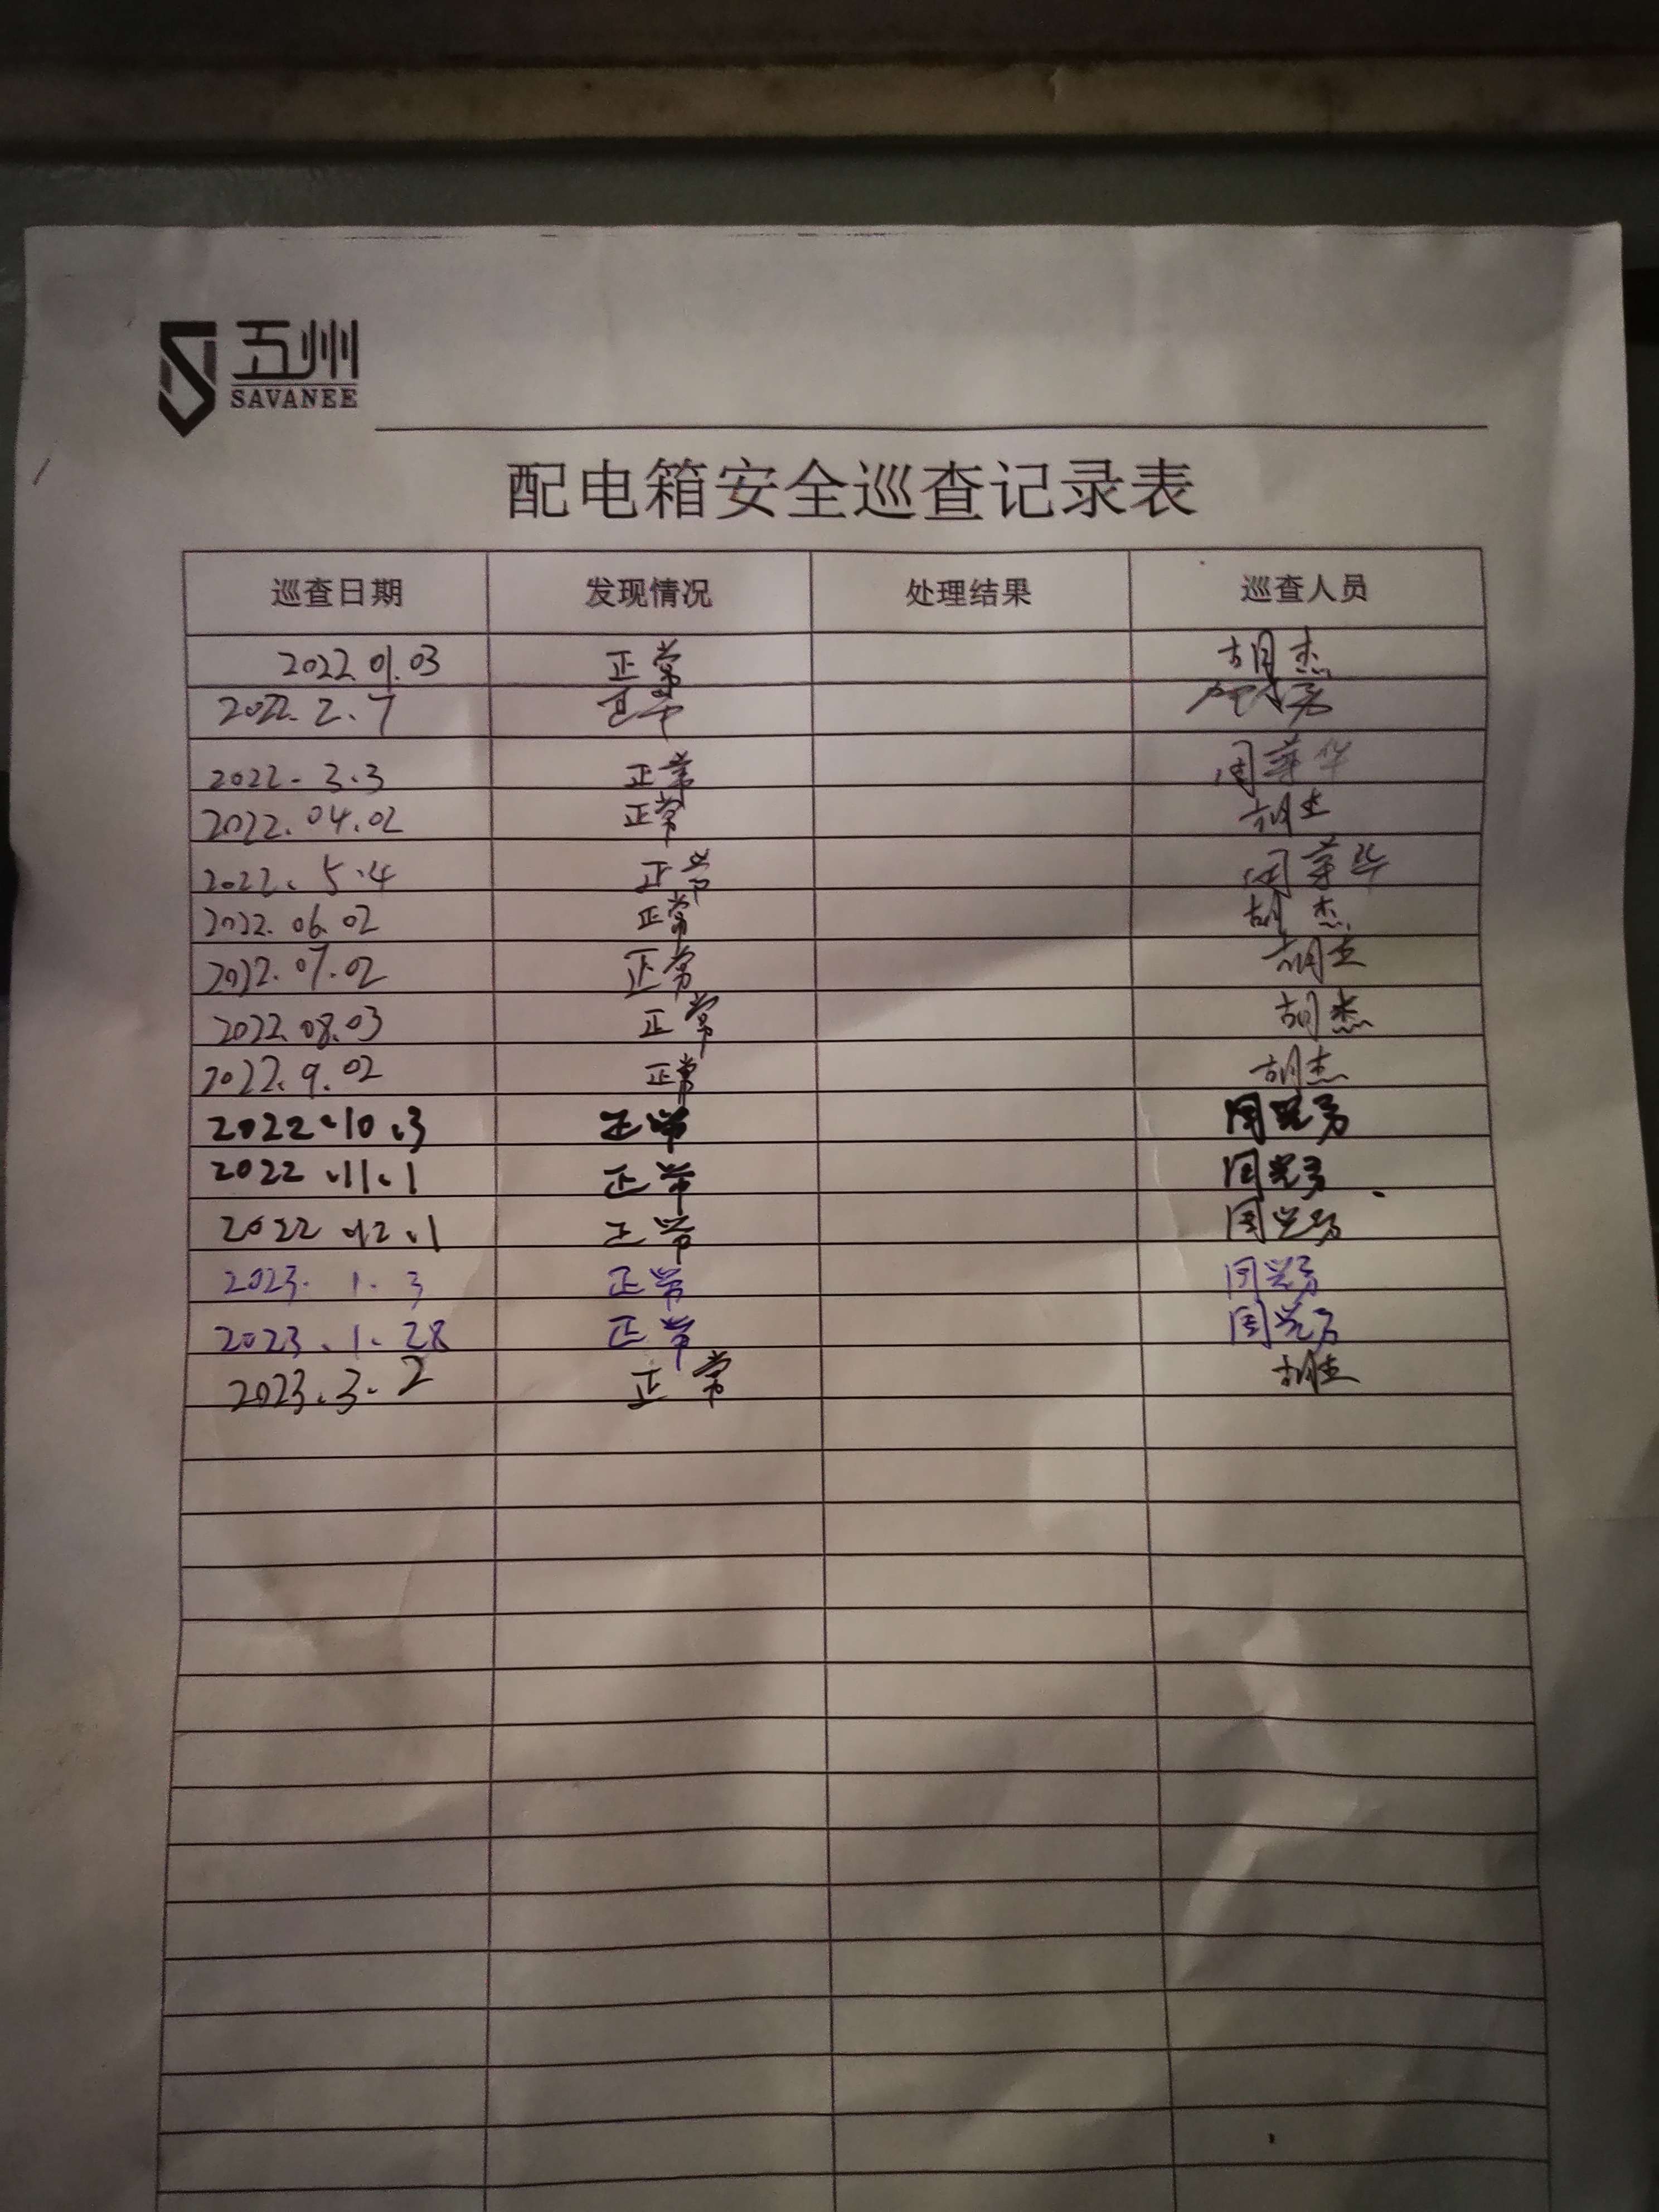 五州
SAVANEE
配电箱安全巡查记录表
巡查日期 发现情况 处理结果 巡查人员
2022.01.03 正常 胡杰
2022.2.7 正常
2022.3.3 正常
2022.04.02 正常 胡杰
2022.5.4 正常
2022.06.02 正常 胡杰
2022.07.02 正常 胡杰
2022.08.03 正常 胡杰
2022.9.02 正常 胡杰
2022.10.3 正常
2022.11.1 正常
2022.12.1 正常
2023.1.3 正常
2023.1.28 正常
2023.3.2 正常 胡杰